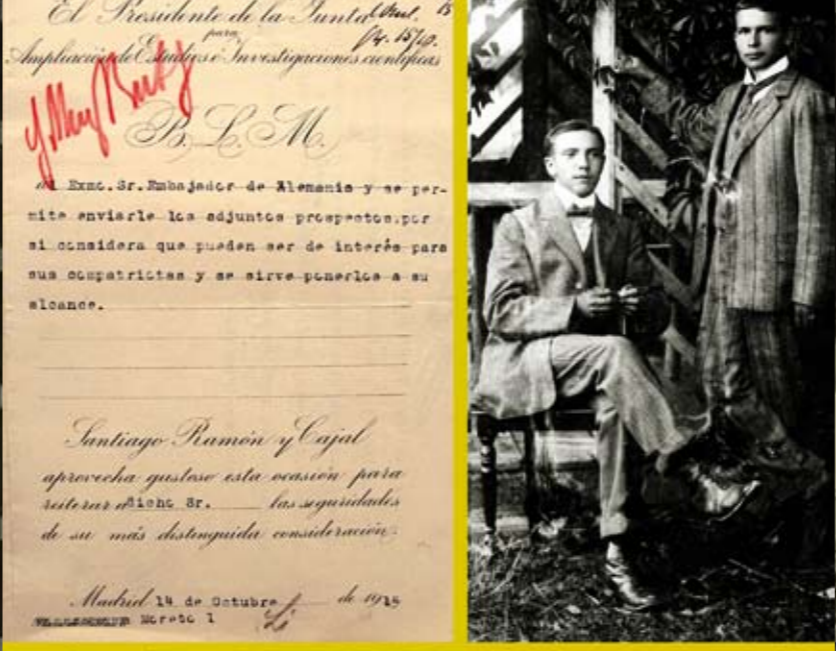 El Presidente de la Junta
para
Ampliación de Estudios é Investigaciones científicas
B. L. M.
al Exmo. Sr. Embajador de Alemania y se per-
mite enviarle los adjuntos prospectos, por
si considera que pueden ser de interés para
sus compatriotas y se sirve ponerlos a su
alcance.
Santiago Ramón y Cajal
aprovecha gustoso esta ocasión para
reiterar a dicho Sr. las seguridades
de su más distinguida consideración.
Madrid 14 de Octubre de 1915
Moreto 1